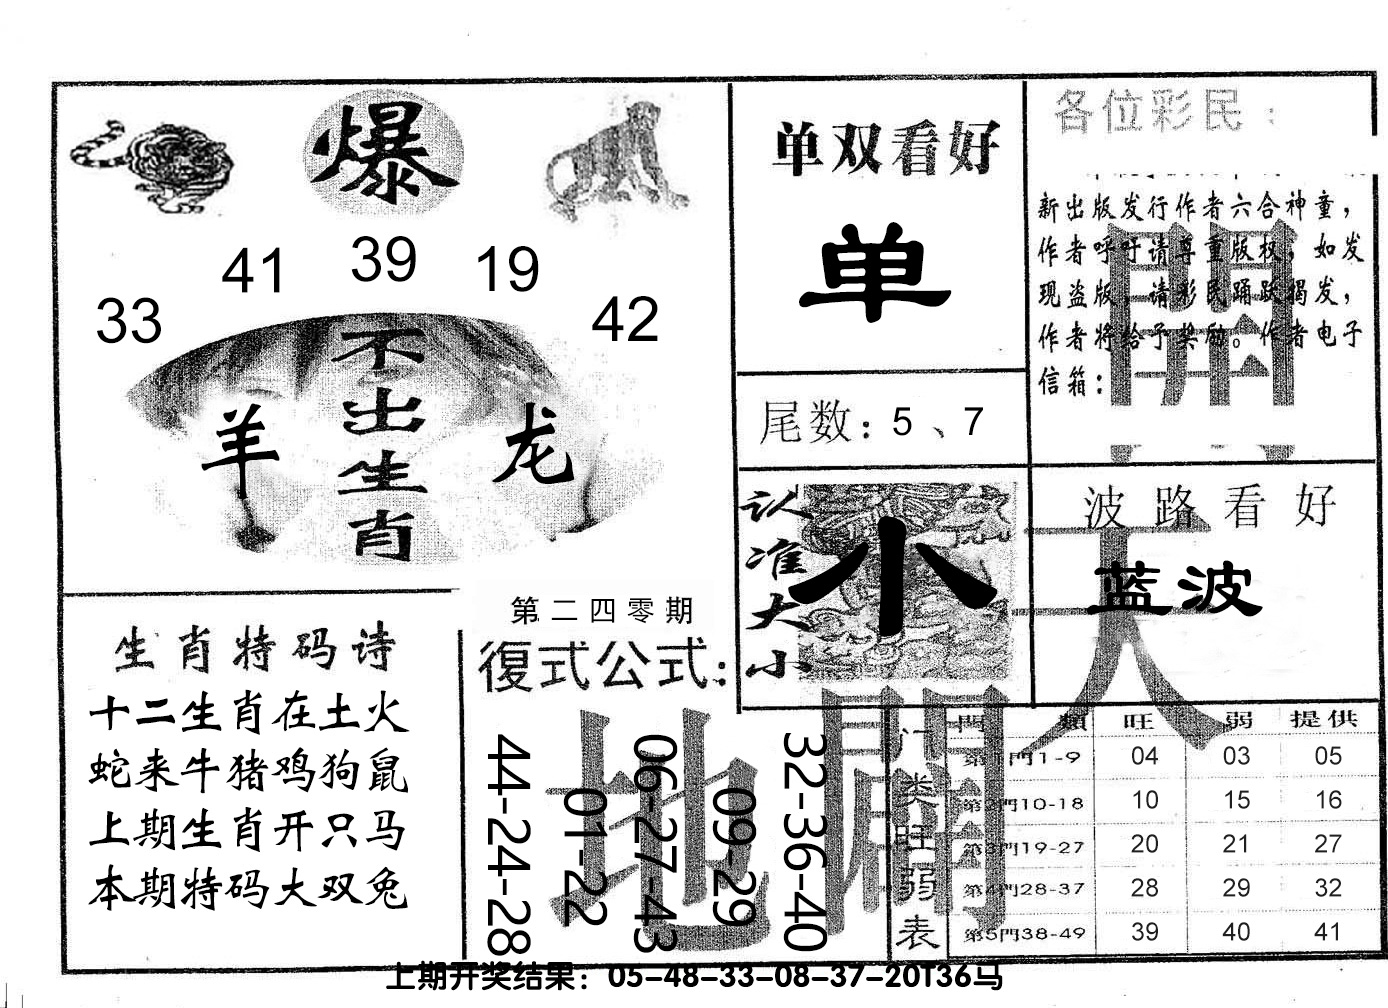 爆
41 39 19
33 42
不出生肖
羊 龙
单双看好
单
尾数：5、7
各位彩民：
新出版发行作者六合神童，
作者呼吁请尊重版权，如发
现盗版，请彩民踊跃揭发，
作者将给予奖励。作者电子
信箱：
認准大小
小
波路看好
蓝波
天
地
生肖特码诗
十二生肖在土火
蛇来牛猪鸡狗鼠
上期生肖开只马
本期特码大双兔
第二四零期
復式公式：
44-24-28
01-22
06-27-43
09-29
32-36-40
门类旺弱表
門 類 旺 弱 提供
第1門1-9 04 03 05
第2門10-18 10 15 16
第3門19-27 20 21 27
第4門28-37 28 29 32
第5門38-49 39 40 41
上期开奖结果：05-48-33-08-37-20T36马